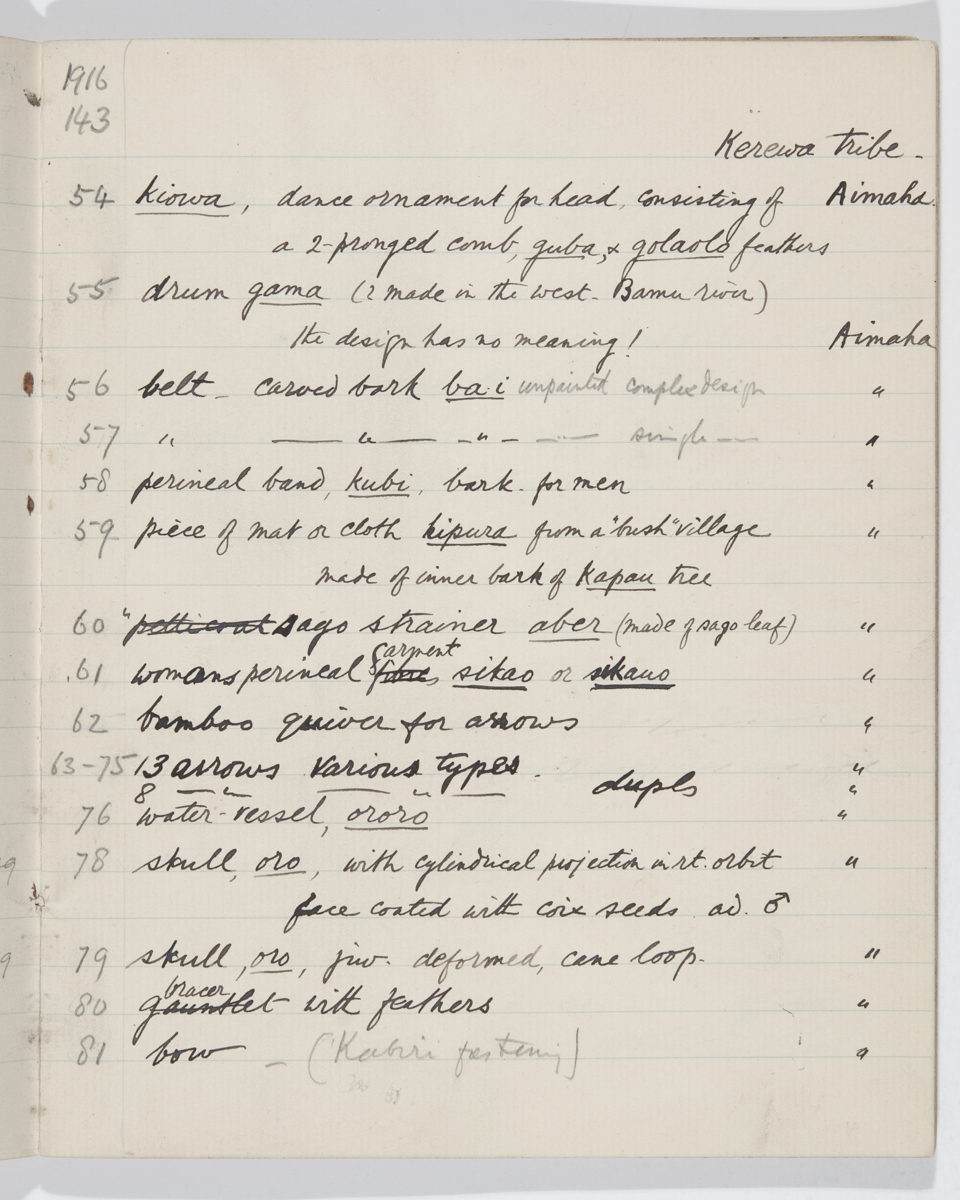 1916
143
Kerewa tribe -
54 kiowa, dance ornament for head, consisting of Aimaha.
a 2-pronged comb, guba, & golaolo feathers
55 drum gama (? made in the west - Bamu river)
the design has no meaning! Aimaha
56 belt - carved bark ba·i unpainted complex design "
57 " — " — - " - — single — "
58 perineal band, kubi, bark. for men "
59 piece of mat or cloth kipura from a "bush" village "
made of inner bark of Kapau tree
60 " petticoat sago strainer aber (made of sago leaf) "
.61 womans perineal garment sikao or sikauo "
62 bamboo quiver for arrows "
63-75 13 arrows various types. "
8 — " — — " — dupls "
76 water-vessel, ororo "
78 skull, oro, with cylindrical projection in rt. orbit "
face coated with coix seeds ad. ♂
79 skull, oro, juv. deformed, cane loop. "
80 gauntlet bracer with feathers "
81 bow - (Kabiri fastening) "
9
9